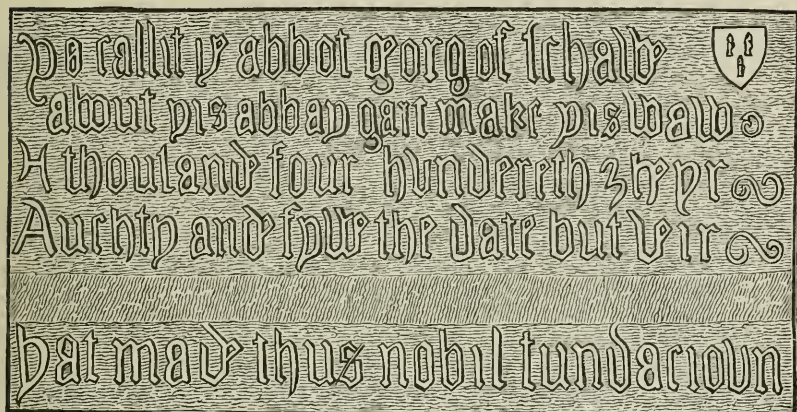 ya callit ye abbot georg of schawe
about yis abbay gart make yis waw
A thousand four hundereth zheyr
Auchty and fywe the date but veir
yat mad thus nobil fundacioun